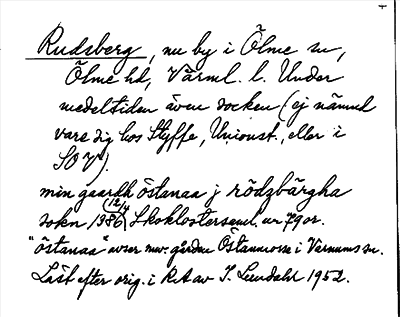 Rudsberg, nu by i Ölme sn,
Ölme hd, Värml. l. Under
medeltiden även socken (ej nämnd
vare sig hos Styffe, Unionst., eller i
SOV).
min gaardh östanaa j rödzbärgha
sokn 1386 (12/4) Skoklostersaml. ur 79 or.
"östanaa" avser nuv. gården Östanmosse i Varnums sn.
Läst efter orig. i RA av I. Lundahl 1952.